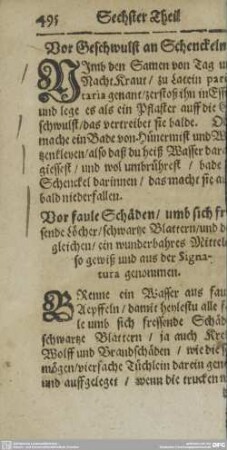 495 Sechster Theil
Vor Geschwulst an Schenckeln
NImb den Samen von Tag un
Nacht Kraut / zu Latein pari
taria genant / zerstoß ihn in Essi
und lege es als ein Pflaster auff die G
schwulst / das vertreibet sie balde.
mache ein Bade von Hünermist und W
tzenkleyen / also daß du heiß Wasser dara
giessest / und wol umbrührest / bade
Schenckel darinnen / das macht sie a
bald niederfallen.
Vor faule Schäden / umb sich fr
sende Löcher / schwartze Blattern / und de
gleichen / ein wunderbahres Mittel
so gewiß und aus der Signa-
tura genommen.
BRenne ein Wasser aus fau
Aepffeln / damit heylestu alle fa
le umb sich fressende Schäd
schwartze Blattern / ja auch Kre
Wolff und Brandschäden / wie die s
mögen / vierfache Tüchlein darein gene
und auffgeleget / wenn die trucken n